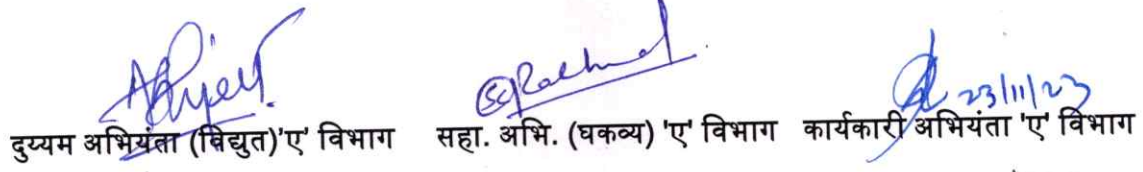 23/11/23
दुय्यम अभियंता (विद्युत)'ए' विभाग सहा. अभि. (घकव्य) 'ए' विभाग कार्यकारी अभियंता 'ए' विभाग